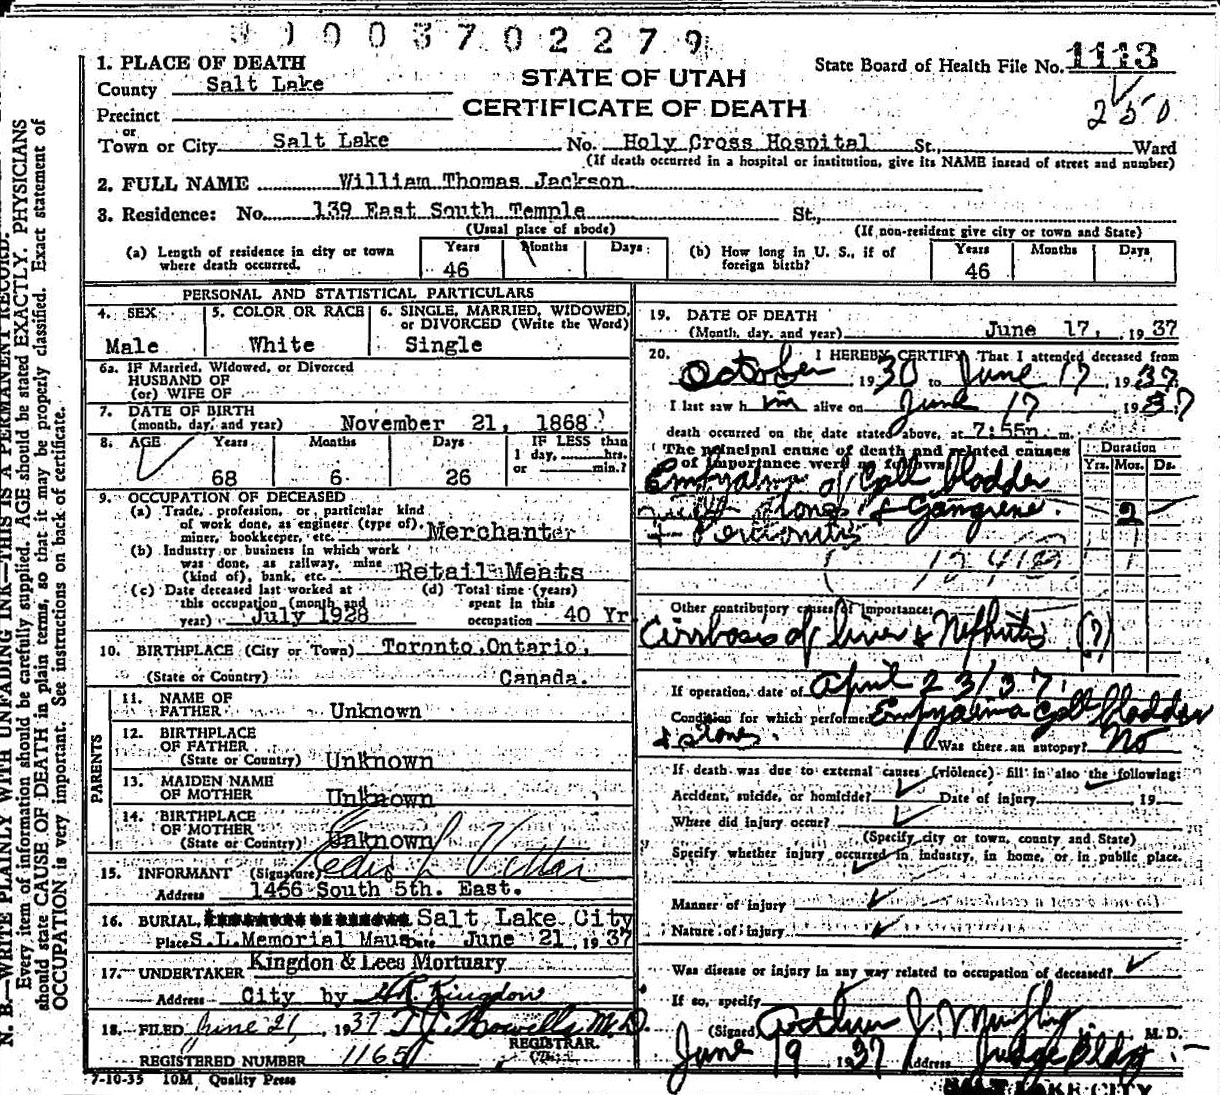 9 1 0 0 3 7 0 2 2 7 9
1. PLACE OF DEATH
County Salt Lake
Precinct
or
Town or City Salt Lake No. Holy Cross Hospital St., Ward
(If death occurred in a hospital or institution, give its NAME instead of street and number)
STATE OF UTAH
CERTIFICATE OF DEATH
State Board of Health File No. 1113
250
2. FULL NAME William Thomas Jackson
3. Residence: No. 139 East South Temple St.,
(Usual place of abode) (If non-resident give city or town and State)
(a) Length of residence in city or town where death occurred. Years 46 Months Days
(b) How long in U. S., if of foreign birth? Years 46 Months Days
PERSONAL AND STATISTICAL PARTICULARS
4. SEX Male
5. COLOR OR RACE White
6. SINGLE, MARRIED, WIDOWED, or DIVORCED (Write the Word) Single
6a. IF Married, Widowed, or Divorced
HUSBAND OF
(or) WIFE OF
7. DATE OF BIRTH
(month, day, and year) November 21, 1868
8. AGE Years 68 Months 6 Days 26 IF LESS than 1 day, hrs. or min.?
9. OCCUPATION OF DECEASED
(a) Trade, profession, or particular kind
of work done, as engineer (type of),
miner, bookkeeper, etc. Merchanter
(b) Industry or business in which work
was done, as railway, mine
(kind of), bank, etc. Retail Meats
(c) Date deceased last worked at
this occupation (month and
year) July 1928
(d) Total time (years)
spent in this
occupation 40 Yr
10. BIRTHPLACE (City or Town) Toronto, Ontario,
(State or Country) Canada.
PARENTS
11. NAME OF
FATHER Unknown
12. BIRTHPLACE
OF FATHER
(State or Country) Unknown
13. MAIDEN NAME
OF MOTHER Unknown
14. BIRTHPLACE
OF MOTHER
(State or Country) Unknown
15. INFORMANT (Signature)
Address 1456 South 5th. East.
16. BURIAL Salt Lake City
Place S.L. Memorial Maus Date June 21, 1937
17. UNDERTAKER Kingdon & Lees Mortuary
Address City by Kingdon
18. FILED June 21, 1937 M.D.
REGISTRAR.
REGISTERED NUMBER 1165
7-10-35 10M Quality Press
19. DATE OF DEATH
(Month, day, and year) June 17, 1937
20. I HEREBY CERTIFY, That I attended deceased from
October 1930 to June 17, 1937
I last saw him alive on June 17 1937
death occurred on the date stated above, at 7:55p m.
The principal cause of death and related causes
of importance were as follows: Duration Yrs. Mos. Ds.
Empyaema of Gall bladder
stones & Gangrene. 2
+ Peritonitis
Other contributory causes of importance:
Cirrhosis of liver & Nephritis (?)
If operation, date of April 23/37.
Condition for which performed Empyaema Gall bladder
& stones. Was there an autopsy? No
If death was due to external causes (violence) fill in also the following:
Accident, suicide, or homicide? Date of injury 19
Where did injury occur?
(Specify city or town, county and State)
Specify whether injury occurred in industry, in home, or in public place.
Manner of injury
Nature of injury
Was disease or injury in any way related to occupation of deceased?
If so, specify
(Signed) Arthur J. Murphy M. D.
June 19 1937 Address Judge Bldg
SALT LAKE CITY
N. B.—WRITE PLAINLY WITH UNFADING INK—THIS IS A PERMANENT RECORD.
Every item of information should be carefully supplied. AGE should be stated EXACTLY. PHYSICIANS
should state CAUSE OF DEATH in plain terms, so that it may be properly classified. Exact statement of
OCCUPATION is very important. See instructions on back of certificate.